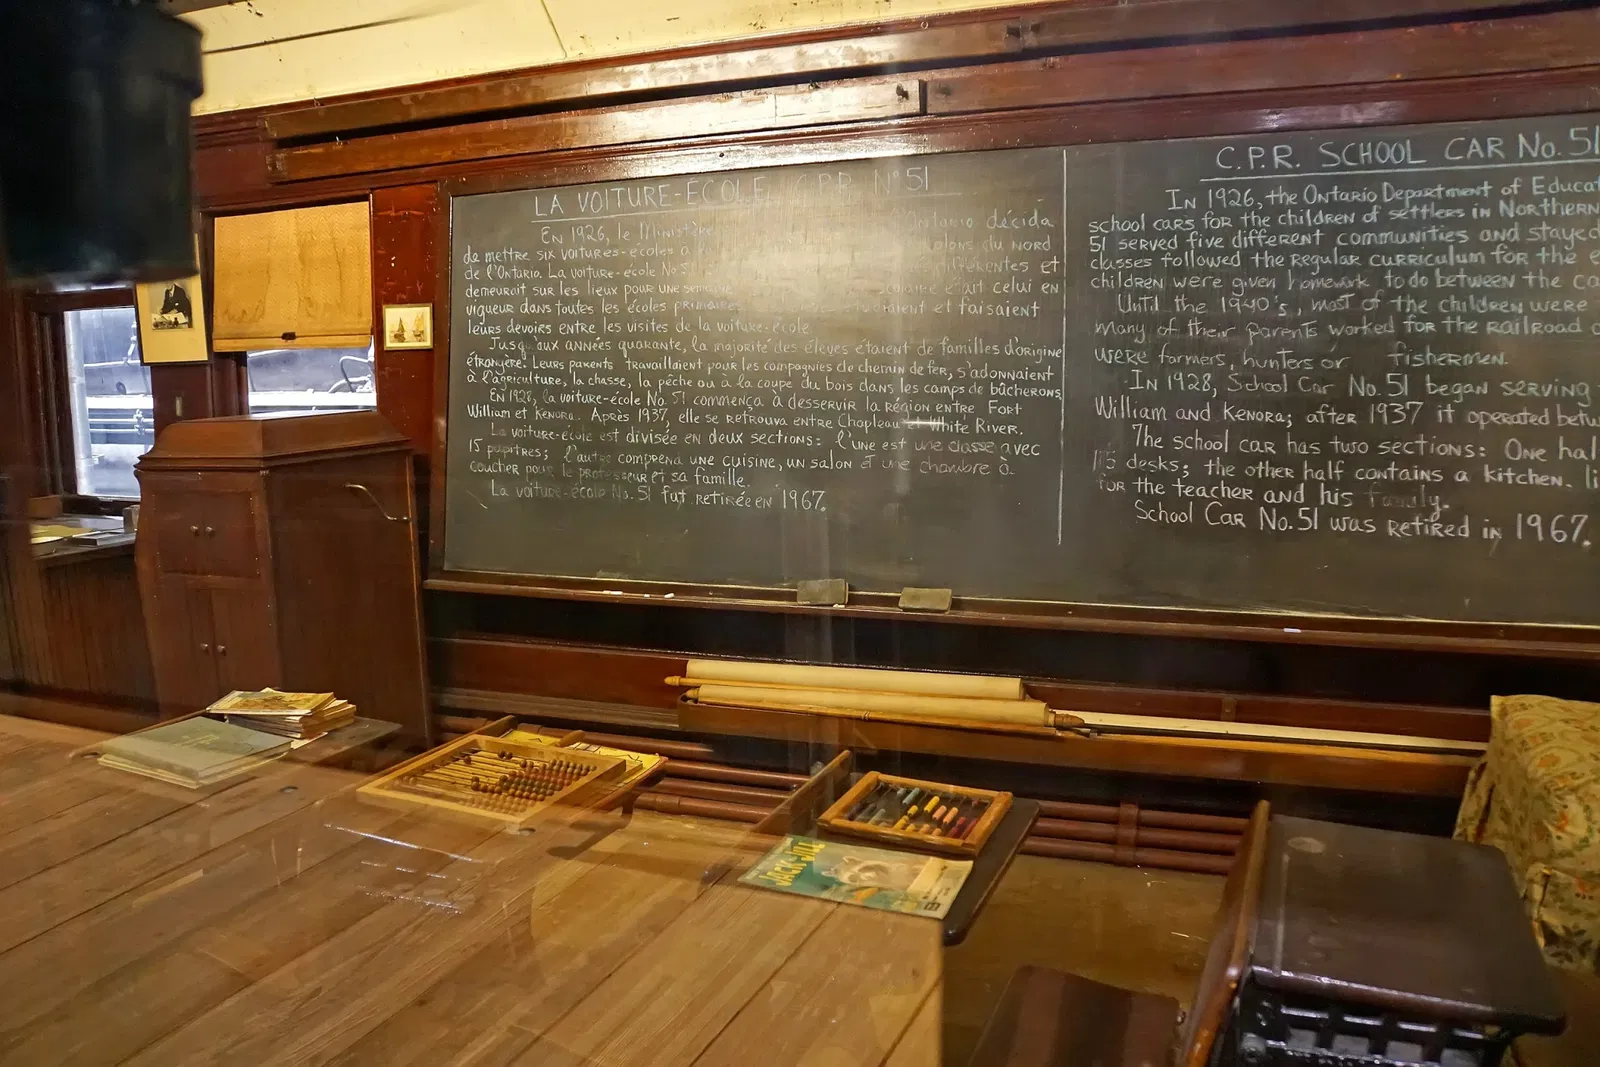 LA VOITURE-ECOLE C.P.R. N°51
EN 1926, le Ministère ontario décida
de mettre six voitures-écoles à colons du NORD
de l'Ontario. La voiture-école No 5 différentes et
demeurait sur les lieux pour une semaine scolaire était celui en
vigueur dans toutes les écoles primaires et faisaient
leurs devoirs entre les visites de la voiture-école.
Jusqu'aux années quarante, la majorité des élèves étaient de familles d'origine
étrangère. Leurs parents travaillaient pour les compagnies de chemin de fer, s'adonnaient
à l'agriculture, la chasse, la pêche ou à la coupe du bois dans les camps de bûcherons.
EN 1928, la voiture-école No. 51 commença à desservir la région entre Fort
William et Kenora. Après 1937, elle se retrouva entre Chapleau et White River.
La voiture-école est divisée en deux sections: l'une est une classe avec
15 pupitres; l'autre comprend une cuisine, un salon et une chambre à
coucher pour le professeur et sa famille.
La voiture-école No. 51 fut retirée en 1967.
C.P.R. SCHOOL CAR No. 51
In 1926, the Ontario Department of Educat
school cars for the children of settlers in Northern
51 served five different communities and stayed
classes followed the regular curriculum for the e
children were given homework to do between the ca
Until the 1940's, most of the children were
many of their parents worked for the railroad o
were farmers, hunters or fishermen.
In 1928, School Car No. 51 began serving
William and Kenora; after 1937 it operated betw
The school car has two sections: One hal
15 desks; the other half contains a kitchen, li
for the teacher and his family.
School Car No. 51 was retired in 1967.
JACK and JILL